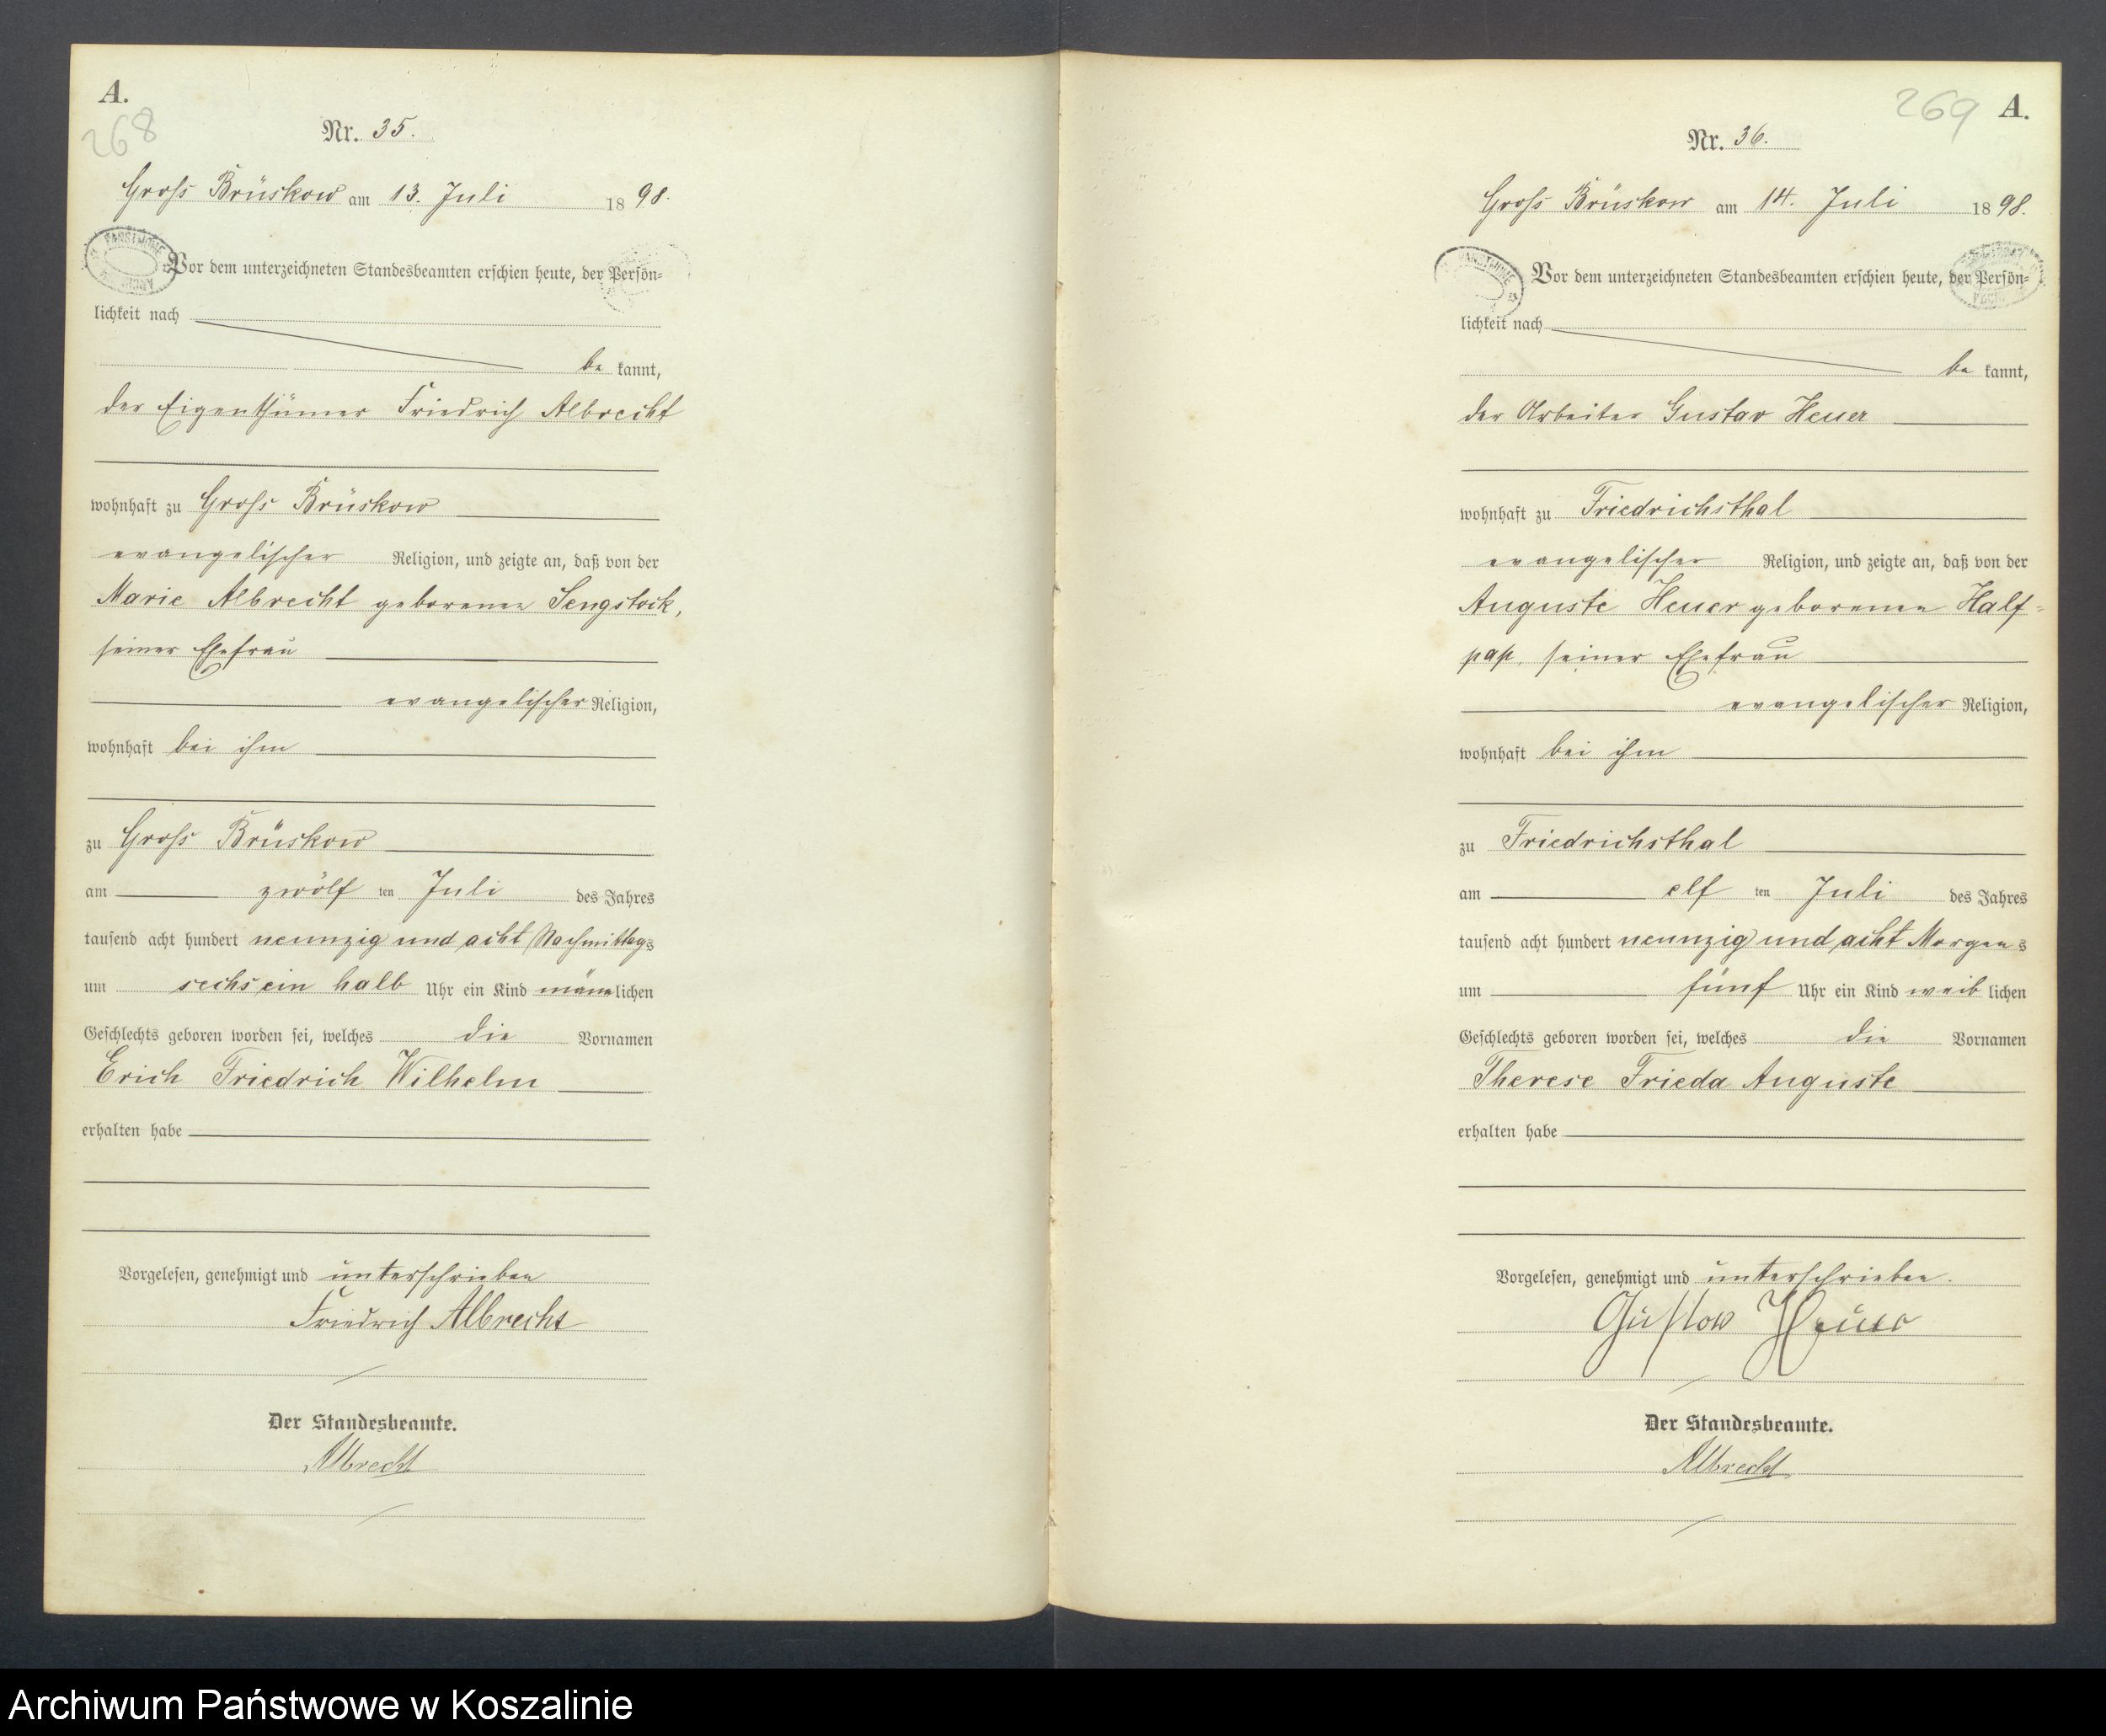 A.
268
Nr. 35.
Gross Brüskow am 13. Juli 1898.
Vor dem unterzeichneten Standesbeamten erschien heute, der Persön-
lichkeit nach
be kannt,
der Eigenthümer Friedrich Albrecht
wohnhaft zu Gross Brüskow
evangelischer Religion, und zeigte an, daß von der
Marie Albrecht geborenen Sengstock,
seiner Ehefrau
evangelischer Religion,
wohnhaft bei ihm
zu Gross Brüskow
am zwölf ten Juli des Jahres
tausend acht hundert neunzig und acht Nachmittags
um sechs ein halb Uhr ein Kind männlichen
Geschlechts geboren worden sei, welches die Vornamen
Erich Friedrich Wilhelm
erhalten habe
Vorgelesen, genehmigt und unterschrieben
Friedrich Albrecht
Der Standesbeamte.
Albrecht
269 A.
Nr. 36.
Gross Brüskow am 14. Juli 1898.
Vor dem unterzeichneten Standesbeamten erschien heute, der Persön-
lichkeit nach
be kannt,
der Arbeiter Gustav Heuer
wohnhaft zu Friedrichsthal
evangelischer Religion, und zeigte an, daß von der
Auguste Heuer geborenen Half-
pap, seiner Ehefrau
evangelischer Religion,
wohnhaft bei ihm
zu Friedrichsthal
am elf ten Juli des Jahres
tausend acht hundert neunzig und acht Morgens
um fünf Uhr ein Kind weib lichen
Geschlechts geboren worden sei, welches die Vornamen
Therese Frieda Auguste
erhalten habe
Vorgelesen, genehmigt und unterschrieben.
Gustow Heuer
Der Standesbeamte.
Albrecht
Archiwum Państwowe w Koszalinie